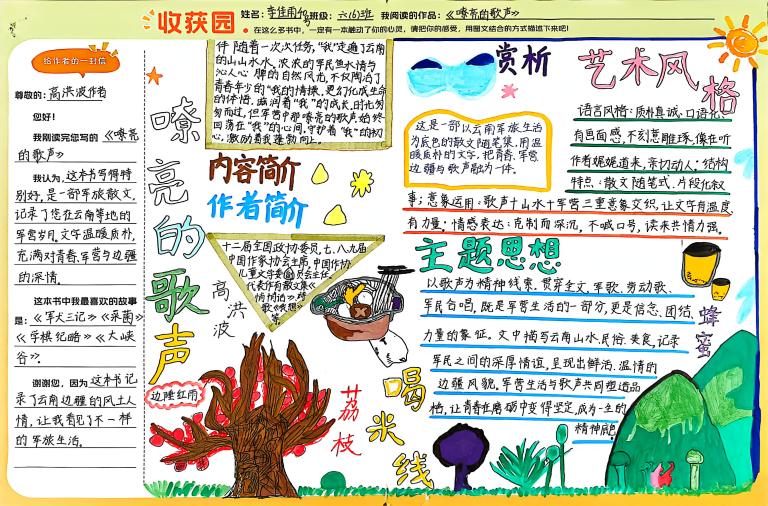 收获园
姓名:李佳雨 班级:六(6)班 我阅读的作品:《嘹亮的歌声》
在这么多书中,一定有一本触动了你的心灵,请把你的感受,用图文结合的方式描述下来吧!
给作者的一封信
尊敬的:高洪波作者
您好!
我刚读完您写的《嘹亮
的歌声》
我认为,这本书写得特
别好,是一部军旅散文,
记录了您在云南等地的
军营岁月。文字温暖质朴,
充满对青春、军营与边疆
的深情。
这本书中我最喜欢的故事
是:《军犬三记》《采菌》
《学棋纪略》《大峡
谷》.
谢谢您,因为这本书记
录了云南边疆的风土人
情,让我看见了不一样
的军旅生活。
嘹亮的歌声
伴随着一次次任务,“我”走遍了云南
的山山水水,浓浓的军民鱼水情与
沁人心脾的自然风光,不仅陶冶了
青春年少的“我”的情操,更幻化成生命
的体悟,滋润着“我”的成长。时光匆
匆而过,但军营中那嘹亮的歌声始终
回荡在“我”的心间,守护着“我”的初
心,激励着我蓬勃向上。
内容简介
作者简介
十二届全国政协委员,七、八、九届
中国作家协会主席,中国作协
儿童文学委员会主任。
代表作有散文集《
悄悄话》诗
歌《我想》
等
高洪波
边陲红雨
荔枝
喝米线
赏析
这是一部以云南军旅生活
为底色的散文随笔集,用温
暖质朴的文字,把青春、军营
边疆与歌声融为一体。
艺术风格
语言风格:质朴真诚、口语化、
有画面感,不刻意雕琢,像在听
作者娓娓道来,亲切动人;结构
特点:散文随笔式、片段化叙
事;意象运用:歌声+山水+军营三重意象交织,让文字有温度、
有力量;情感表达:克制而深沉,不喊口号,读来共情力强。
主题思想
以歌声为精神线索,贯穿全文,军歌、劳动歌、
军民合唱,既是军营生活的一部分,更是信念、团结、
力量的象征。文中描写云南山水、民俗、美食,记录
军民之间的深厚情谊,呈现出鲜活、温情的
边疆风貌。军营生活与歌声共同塑造品
格,让青春在磨砺中变得坚定,成为一生的
精神底色!
蜂蜜